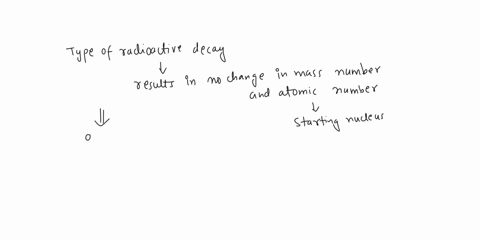 Type of radioactive decay
↓
results in no change in mass number
and atomic number
↓
Starting nucleus
⇓
o